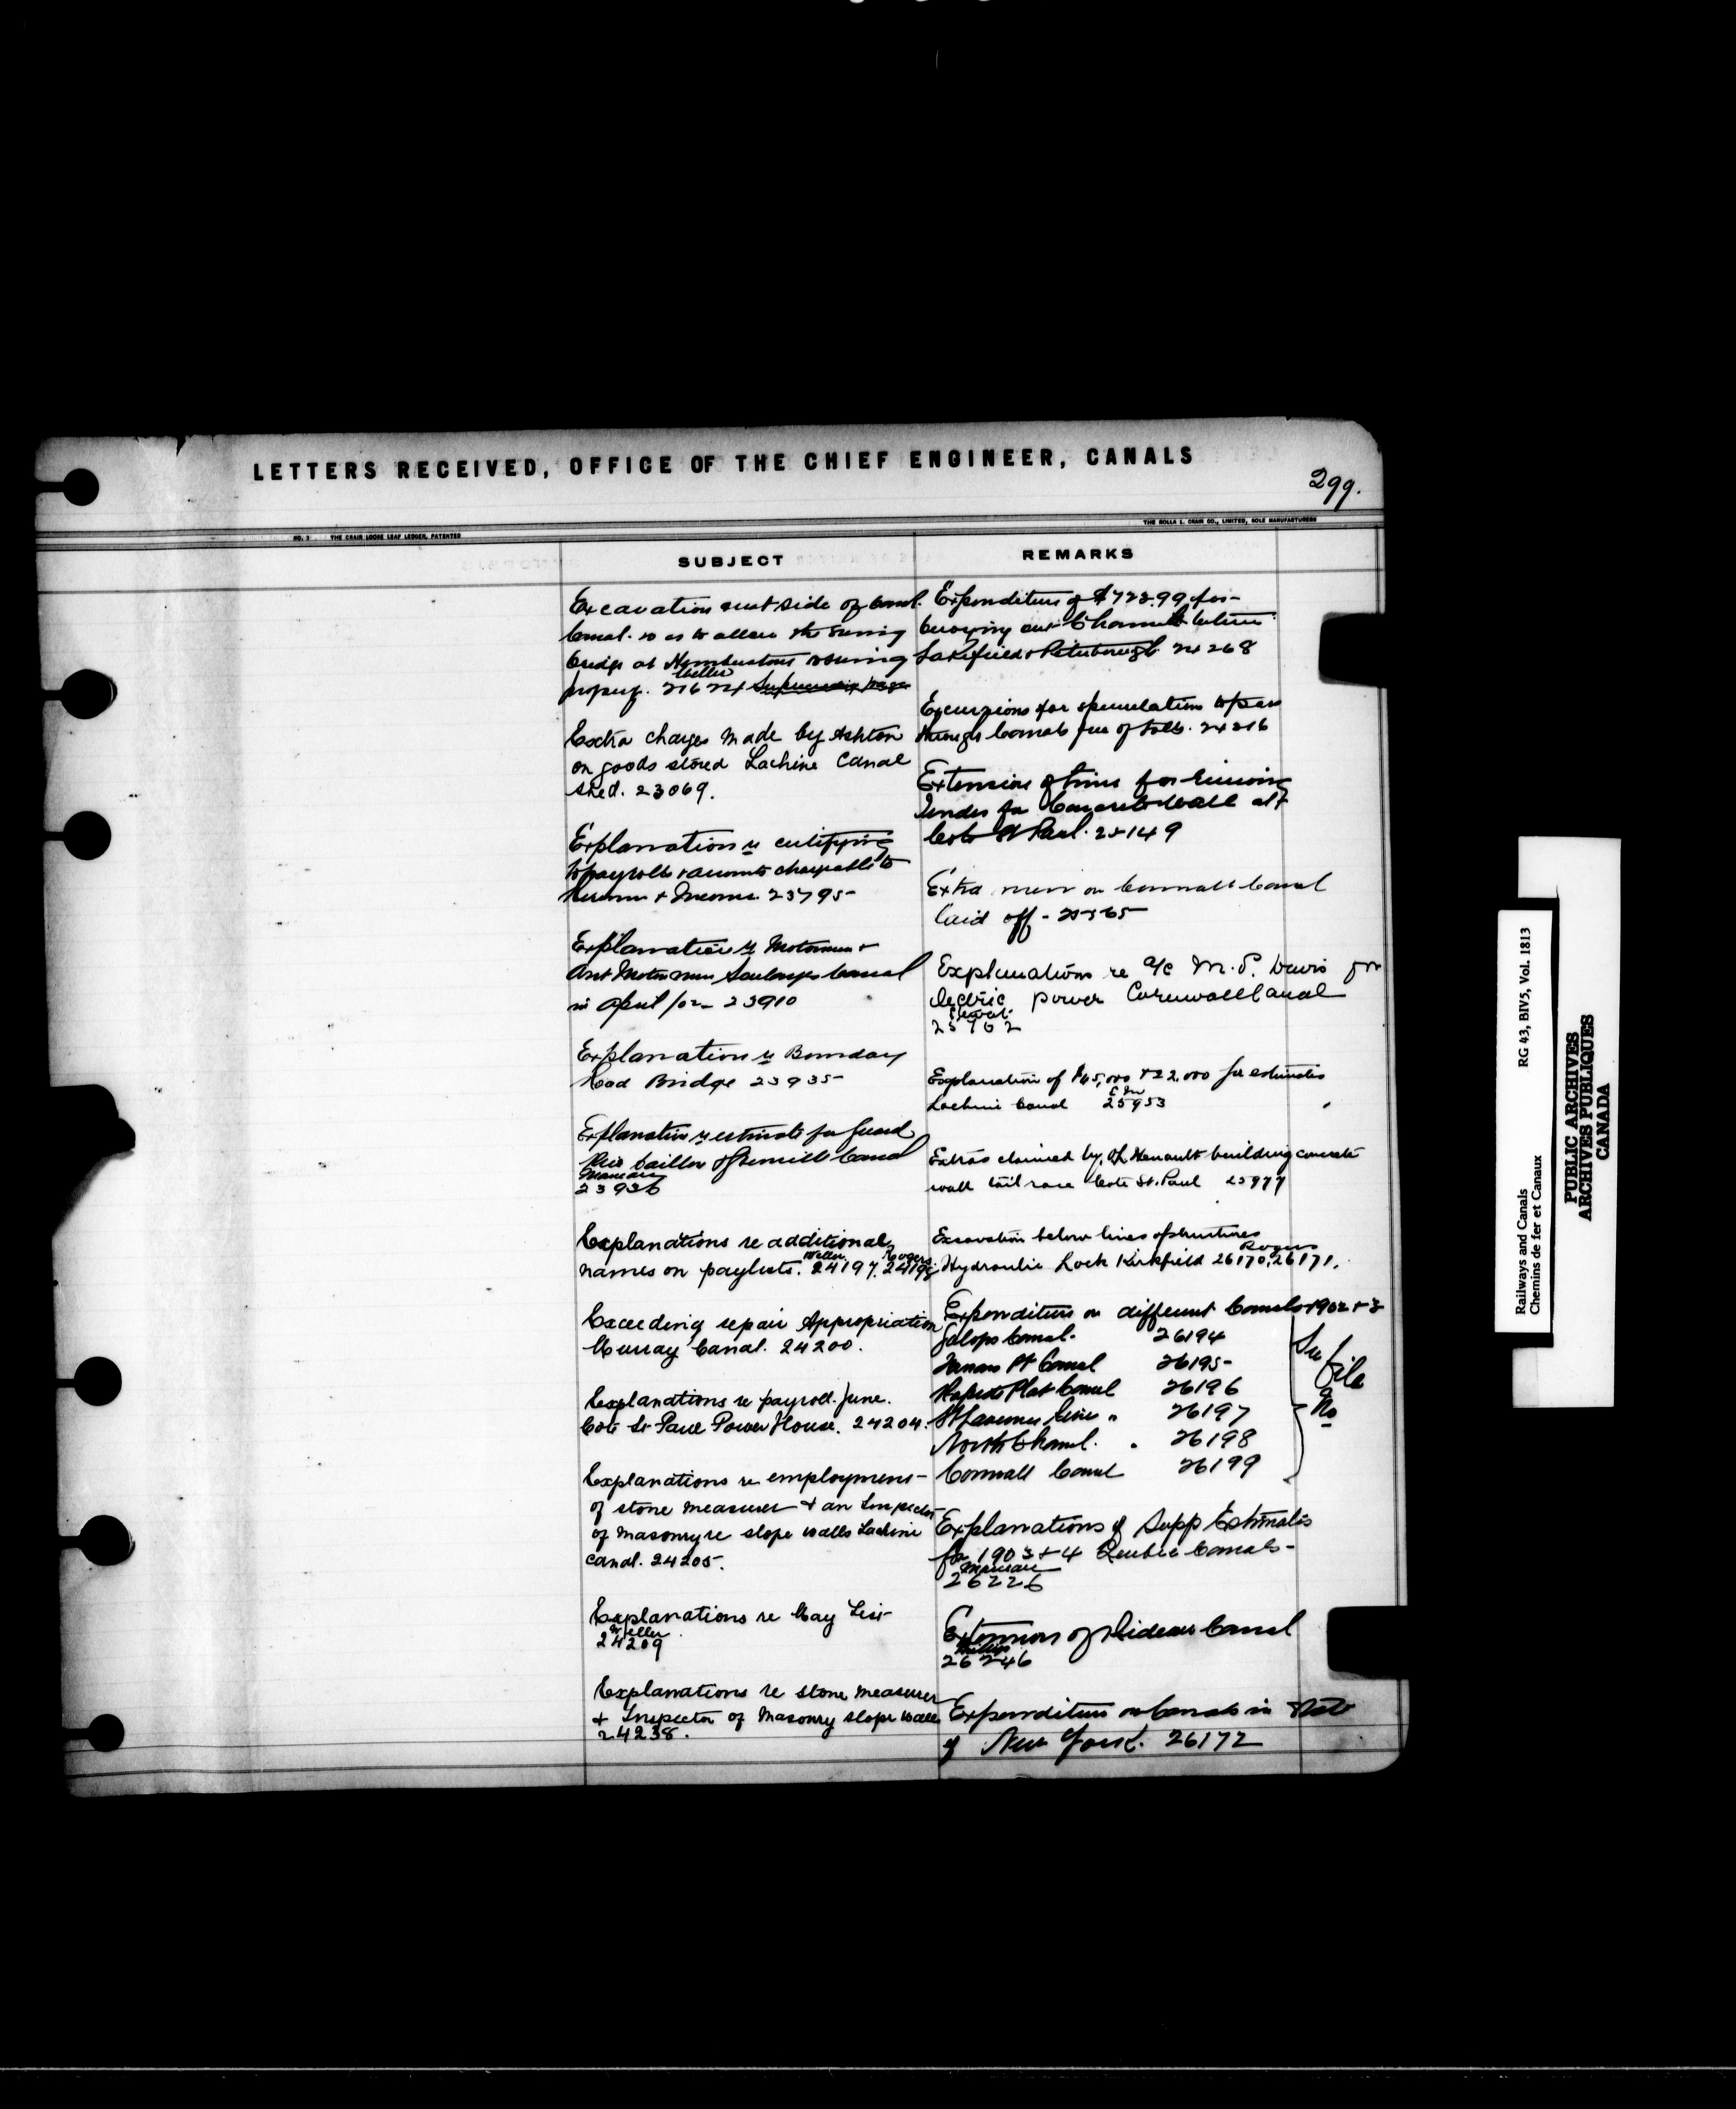 LETTERS RECEIVED, OFFICE OF THE CHIEF ENGINEER, CANALS
299.
THE ROLLA L. CRAIN CO., LIMITED, SOLE MANUFACTURERS
NO. 3 THE CRAIN LOOSE LEAF LEDGER, PATENTED
SUBJECT
Excavation side of
Canal. so as to allow the swing
bridge at swing
properly. 21624
Weller
Extra charges made by Ashton
on goods stored Lachine Canal
shed. 23069.
Explanation re certifying
to payrolls & accounts chargeable to
& Income. 23795
Explanation re Motormen &
Asst Motormen Soulanges Canal
in April /02 23910
Explanation re Boundary
Road Bridge 23935
Explanation re estimate for Guard
Pier Grenville Canal
Marceau
23936
Explanations re additional
Weller Rogers
names on paylists. 24197. 24198
Exceeding repair Appropriation
Murray Canal. 24200.
Explanations re payroll June.
Cote St Paul Power House. 24204.
Explanations re employment
of stone measurer & an Inspector
of masonry re slope walls Lachine
canal. 24205.
Explanations re May List
Weller
24209
Explanations re stone measurer
& Inspector of Masonry slope walls
24238.
REMARKS
Expenditure of $723.99 for
buoying out Channel between
Lakefield & Peterborough 24268
Excursions for speculation to pass
through Canals free of tolls. 24216
Extension of time for receiving
Tender for Concrete Wall at
Cote St Paul. 25149
Extra men on Cornwall Canal
laid off - 25565
Explanation re a/c M.P. Davis for
electric power Cornwall Canal
Stewart
25702
Explanation of $65,000 & 22,000 for estimates
Lachine Canal 25953
Extras claimed by Henault building concrete
wall tail race Cote St. Paul 25977
Excavation below lines of structures
Rogers
Hydraulic Lock Kirkfield 26170, 26171.
Expenditure on different Canals 1902 & 3
Galops Canal. 26194
Farrans Pt Canal 26195
Rapide Plat Canal 26196
St Lawrence River " 26197
North Channel. " 26198
Cornwall Canal 26199
See
file
No
Explanations of Supp Estimates
for 1903 & 4 Quebec Canals-
Marceau
26226
Extension of Rideau Canal
Phillips
26246
Expenditure on Canals in State
of New York. 26172
Railways and Canals RG 43, BIV5, Vol. 1813
Chemins de fer et Canaux
PUBLIC ARCHIVES
ARCHIVES PUBLIQUES
CANADA